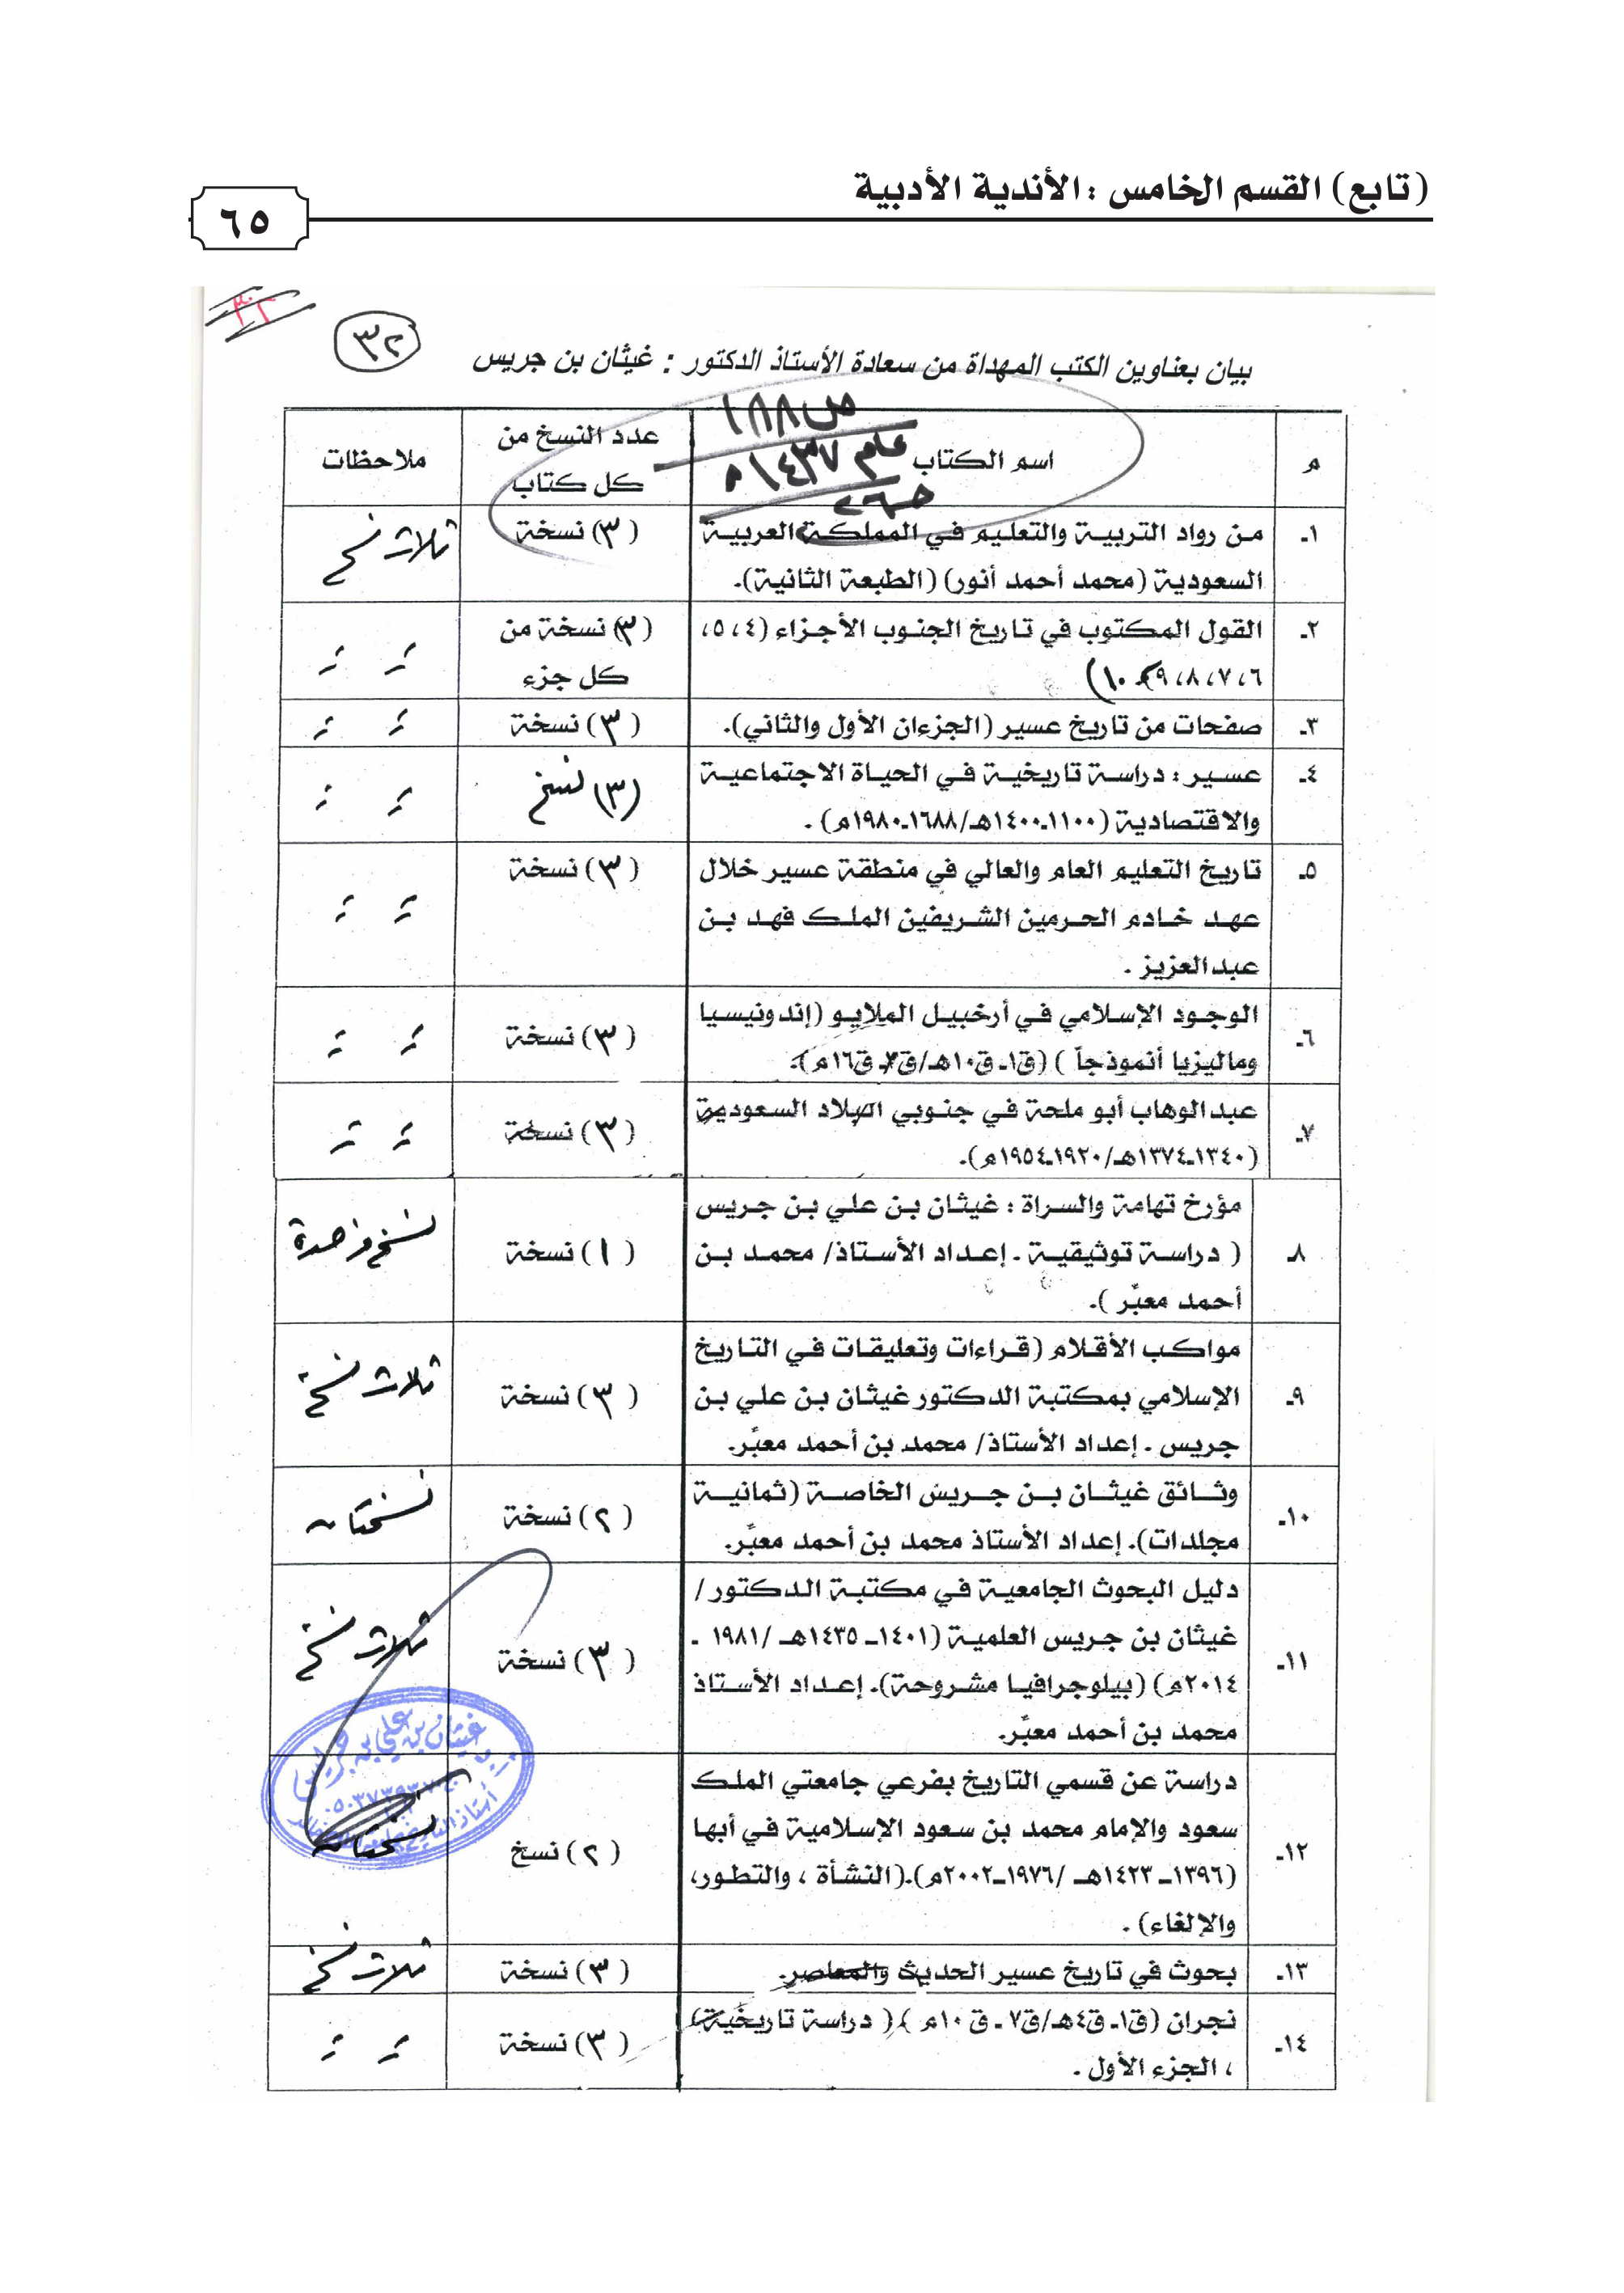 (تابع) القسم الخامس : الأندية الأدبية
٦٥
٣٢
٣٢
بيان بعناوين الكتب المهداة من سعادة الأستاذ الدكتور : غيثان بن جريس
م
اسم الكتاب
عدد النسخ من
كل كتاب
ملاحظات
ص ١٨٨
عام ١٤٣٧هـ
١ـ
من رواد التربية والتعليم في المملكة العربية
السعودية (محمد أحمد أنور) (الطبعة الثانية).
(٣) نسخة
ثلاث نسخ
٢ـ
القول المكتوب في تاريخ الجنوب الأجزاء (٤، ٥،
٦، ٧، ٨، ٩، ١٠)
(٣) نسخة من
كل جزء
٣ـ
صفحات من تاريخ عسير (الجزءان الأول والثاني).
(٣) نسخة
٤ـ
عسير : دراسة تاريخية في الحياة الاجتماعية
والاقتصادية (١١٠٠ـ١٤٠٠هـ/١٦٨٨ـ١٩٨٠م) .
(٣) نسخ
٥ـ
تاريخ التعليم العام والعالي في منطقة عسير خلال
عهد خادم الحرمين الشريفين الملك فهد بن
عبدالعزيز .
(٣) نسخة
٦ـ
الوجود الإسلامي في أرخبيل الملايو (إندونيسيا
وماليزيا أنموذجاً ) (ق١ـ ق١٠هـ/ق٧ـ ق١٦م).
(٣) نسخة
٧ـ
عبدالوهاب أبو ملحة في جنوبي البلاد السعودية
(١٣٤٠ـ١٣٧٤هـ/١٩٢٠ـ١٩٥٤م).
(٣) نسخة
٨ـ
مؤرخ تهامة والسراة : غيثان بن علي بن جريس
( دراسة توثيقية . إعداد الأستاذ/ محمد بن
أحمد معبّر ).
(١) نسخة
٩ـ
مواكب الأقلام (قراءات وتعليقات في التاريخ
الإسلامي بمكتبة الدكتور غيثان بن علي بن
جريس . إعداد الأستاذ/ محمد بن أحمد معبّر.
(٣) نسخة
ثلاث نسخ
١٠ـ
وثائق غيثان بن جريس الخاصة (ثمانية
مجلدات). إعداد الأستاذ محمد بن أحمد معبّر.
(٢) نسخة
نسختان
١١ـ
دليل البحوث الجامعية في مكتبة الدكتور/
غيثان بن جريس العلمية (١٤٠١ـ ١٤٣٥هـ /١٩٨١ ـ
٢٠١٤م) (بيلوجرافيا مشروحة). إعداد الأستاذ
محمد بن أحمد معبّر.
(٣) نسخة
ثلاث نسخ
غيثان بن علي بن جريس
١٢ـ
دراسة عن قسمي التاريخ بفرعي جامعتي الملك
سعود والإمام محمد بن سعود الإسلامية في أبها
(١٣٩٦ـ ١٤٢٣هـ /١٩٧٦ـ٢٠٠٢م).(النشأة ، والتطور،
والإلغاء) .
(٢) نسخ
نسختان
١٣ـ
بحوث في تاريخ عسير الحديث والمعاصر.
(٣) نسخة
ثلاث نسخ
١٤ـ
نجران (ق١ـ ق٤هـ/ق٧ ـ ق ١٠م )( دراسة تاريخية)
، الجزء الأول .
(٣) نسخة